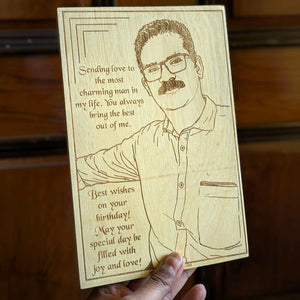 Sending love to
the most
charming man in
my life. You always
bring the best
out of me.
Best wishes
on your
birthday!
May your
special day be
filled with
joy and love!